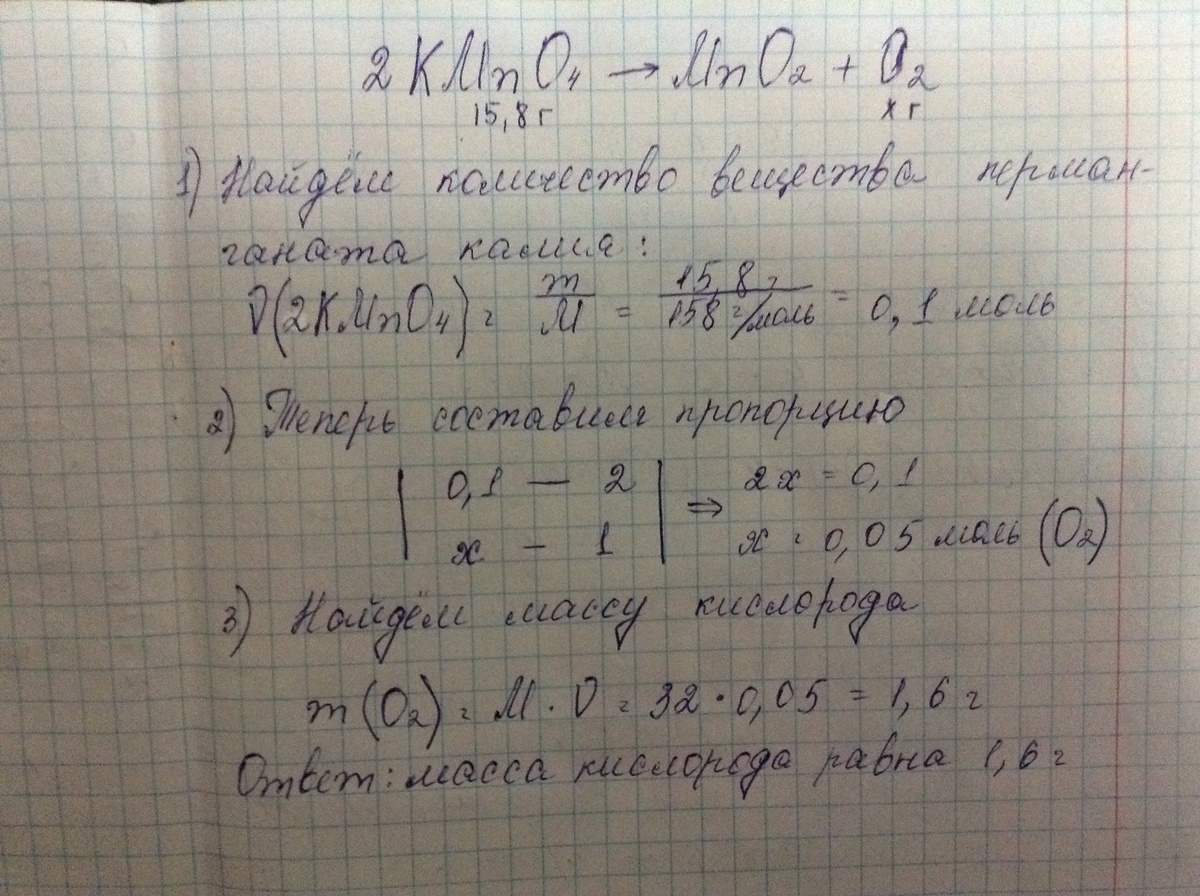 2 KMnO₄ → MnO₂ + O₂
15,8 г x г
1) Найдём количество вещества перман-
ганата калия:
ν(2KMnO₄) = m/M = 15,8 г/158 г/моль = 0,1 моль
2) Теперь составим пропорцию
| 0,1 — 2 | ⇒ 2x = 0,1
| x — 1 | x = 0,05 моль (O₂)
3) Найдём массу кислорода
m(O₂) = M · ν = 32 · 0,05 = 1,6 г
Ответ: масса кислорода равна 1,6 г